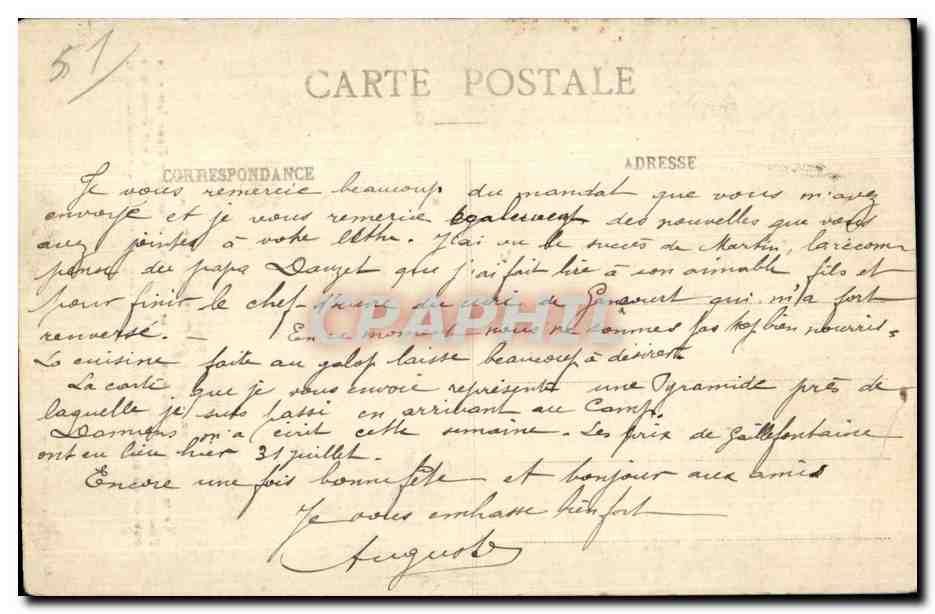 51
CARTE POSTALE
CORRESPONDANCE
ADRESSE
Je vous remercie beaucoup du mandat que vous m'avez
envoyé et je vous remercie également des nouvelles que vous
avez jointes à votre lettre. J'ai vu le succès de Martin, la récom
pense du papa Dauzet que j'ai fait lire à son aimable fils et
pour finir le chef-d'œuvre du curé de qui m'a fort
renversé. - En ce moment nous ne sommes pas trop bien nourris -
La cuisine faite au galop laisse beaucoup à désirer
La carte que je vous envoie représente une Pyramide près de
laquelle je suis passé en arrivant au Camp.
m'a écrit cette semaine. Les prix de Gaillefontaine
ont eu lieu hier 31 juillet.
Encore une fois bonne fête et bonjour aux amis
Je vous embrasse bien fort
Auguste
CPAPHIL